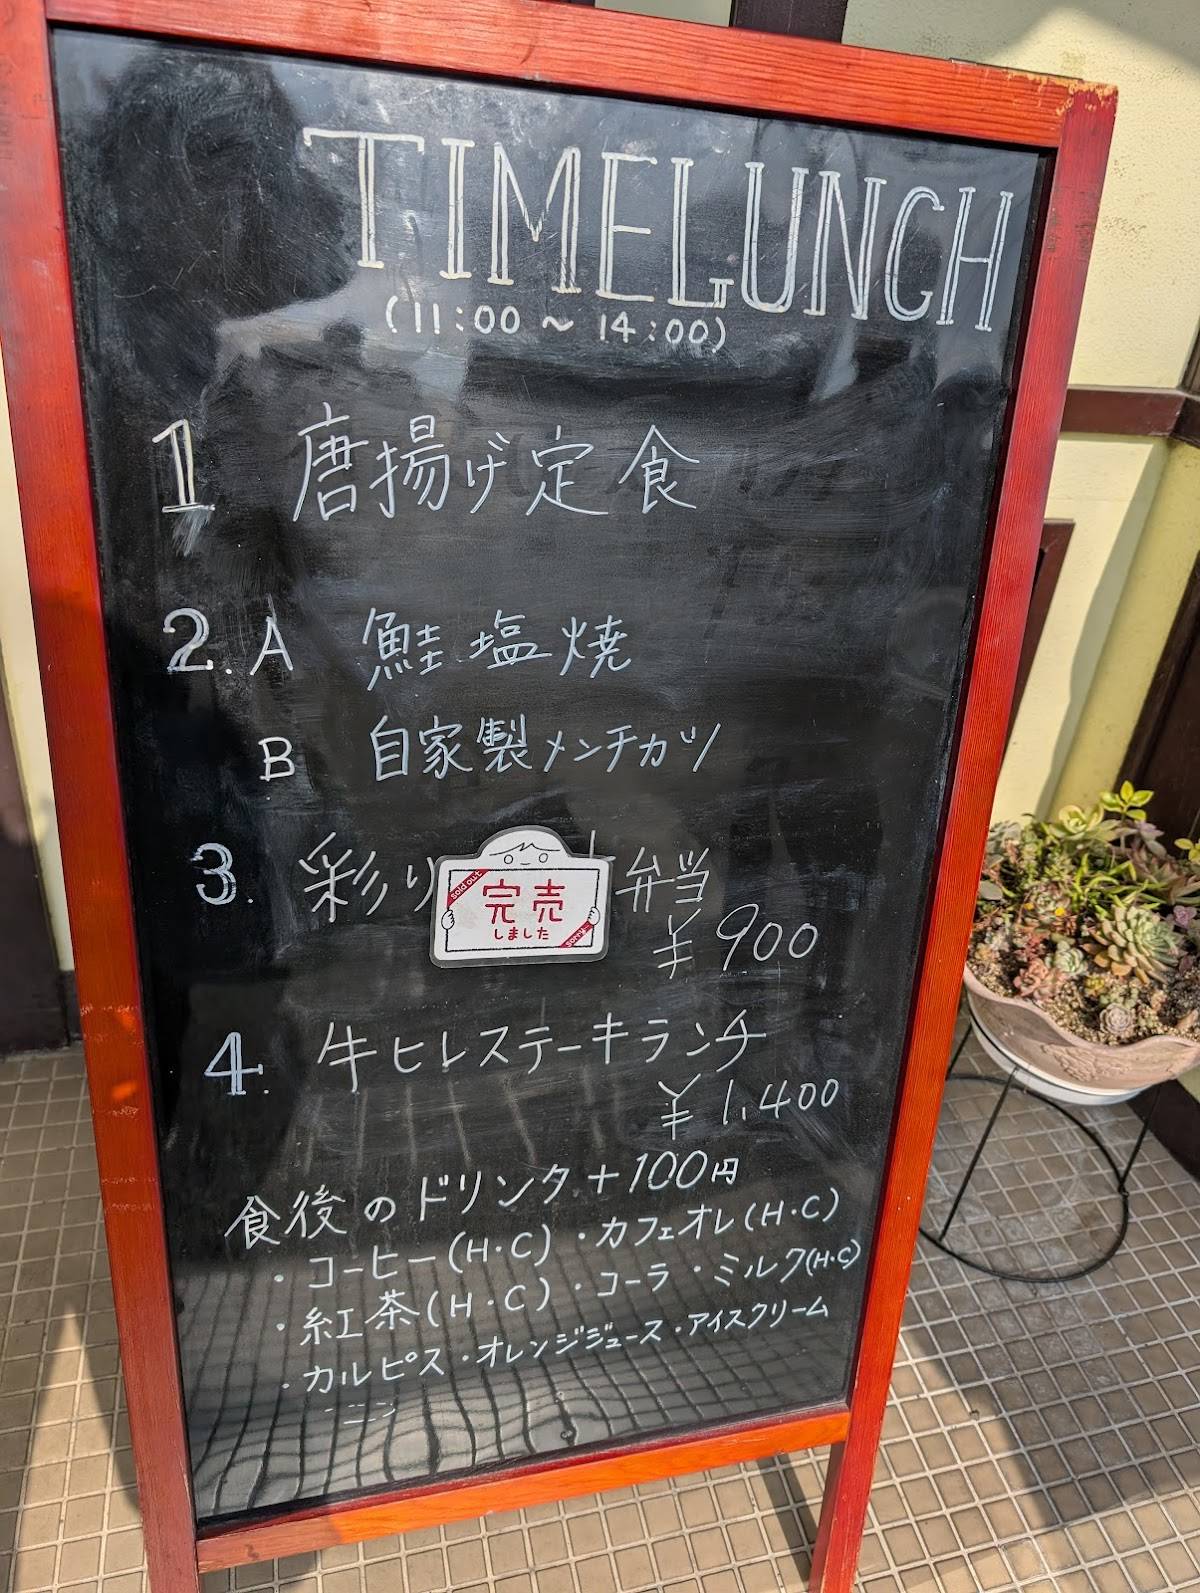 TIMELUNCH
(11:00 ~ 14:00)
1 唐揚げ定食
2. A 鮭塩焼
B 自家製メンチカツ
3. 彩り 弁当
sold out
完売
しました
sorry
¥900
4. 牛ヒレステーキランチ
¥1,400
食後のドリンク+100円
・コーヒー(H・C) ・カフェオレ(H・C)
・紅茶(H・C) ・コーラ ・ミルク(H・C)
・カルピス・オレンジジュース・アイスクリーム